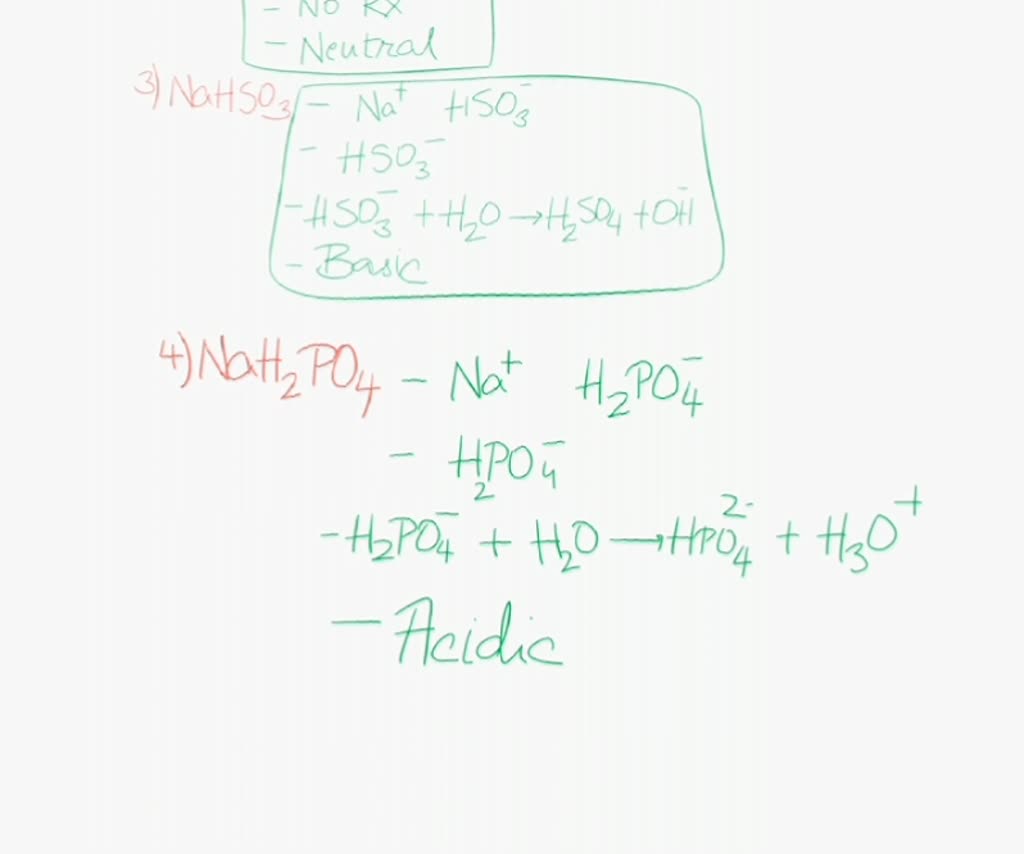 - No RX
- Neutral
3) NaHSO₃ - Na⁺ HSO₃⁻
- HSO₃⁻
- HSO₃⁻ + H₂O → H₂SO₄ + OH⁻
- Basic
4) NaH₂PO₄ - Na⁺ H₂PO₄⁻
- H₂PO₄⁻
- H₂PO₄⁻ + H₂O → HPO₄²⁻ + H₃O⁺
- Acidic